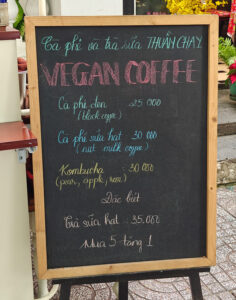 Cà phê và trà sữa THUẦN CHAY
VEGAN COFFEE
Cà phê đen 25.000
(black coffee)
Cà phê sữa hạt 30.000
(nut milk coffee)
Kombucha 30.000
(pear, apple, rose)
Đặc biệt
Trà sữa hạt - 35.000
Mua 5 tặng 1